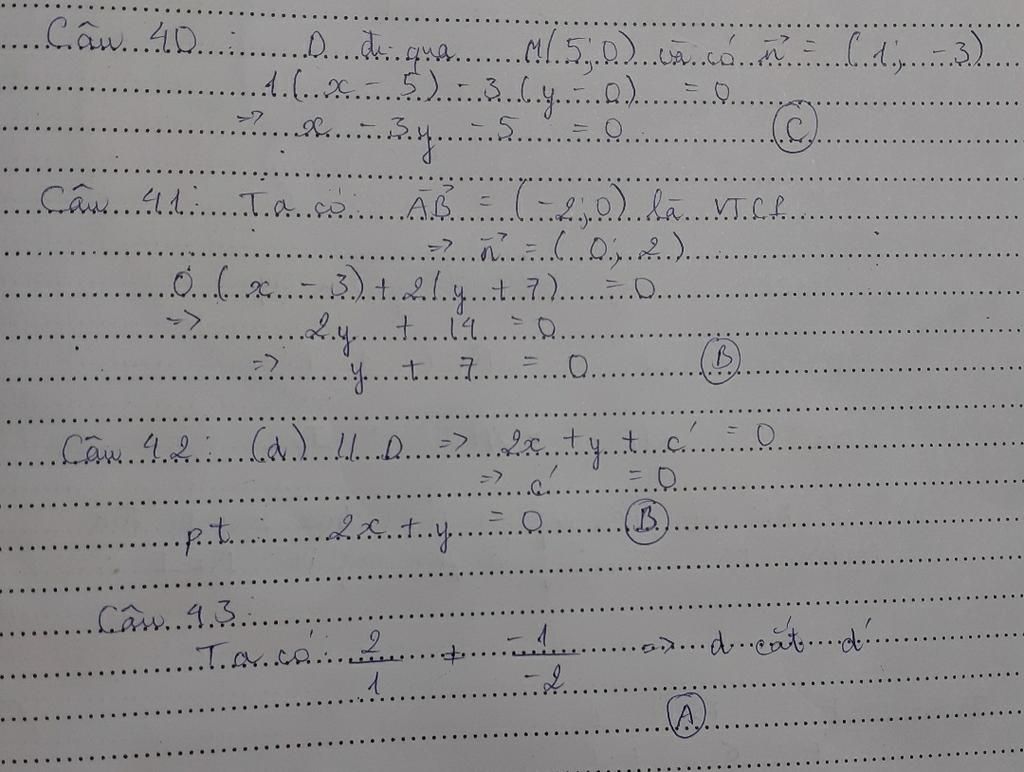 Câu 40: D đi qua M(5;0) và có n⃗ = (1; -3)
1(x - 5) - 3(y - 0) = 0
=> x - 3y - 5 = 0 (C)
Câu 41: Ta có AB⃗ = (-2;0) là VTCP
=> n⃗ = (0; 2)
0(x - 3) + 2(y + 7) = 0
=> 2y + 14 = 0
=> y + 7 = 0 (B)
Câu 42: (d) // D => 2x + y + c' = 0
=> c' = 0
pt: 2x + y = 0 (B)
Câu 43:
Ta có: 2/1 ≠ -1/-2 => d cắt d'
(A)